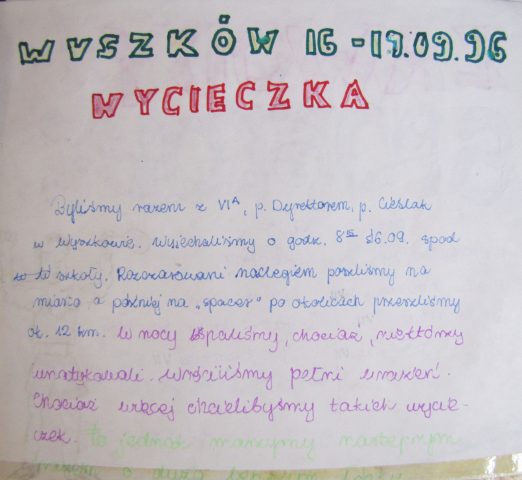 WYSZKÓW 16-19.09.96
WYCIECZKA
Byliśmy razem z VIA, p. Dyrektorem, p. Cieślak
w Wyszkowie. Wyjechaliśmy o godz. 8 16.09. spod
szkoły. Rozczarowani noclegiem poszliśmy na
miasto a później na „spacer" po okolicach przeszliśmy
ok. 12 km. W nocy spaliśmy, chociaż, niektórzy
unatykowali. Wróciliśmy pełni wrażeń.
Chociaż więcej chcielibyśmy takich wycie-
czek. to jednak marzymy następnym
razem o